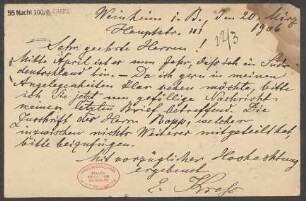 55 Nachl 100/B
Weinheim i. B., den 20. März
Hauptstr. 111 1906
Sehr geehrte Herren!
Mitte April ist ein Jahr, dass ich in Süd-
deutschland bin. – Da ich gern in meinen
Angelegenheiten klar sehen möchte, bitte
ich Sie, mir gefällige Nachricht
meinen letzten Brief betreffend. Die
Zuschrift des Herrn Bopp, welcher
inzwischen nichts Weiteres mitgeteilt hat
bitte beizufügen.
Mit vorzüglicher Hochachtung
ergebenst
E.